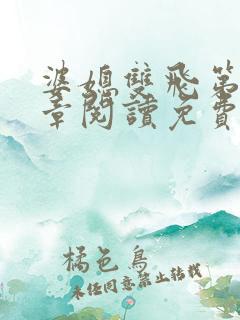 婆媳雙飛第
章閱讀免費
橘色鳥
未经同意禁止转载